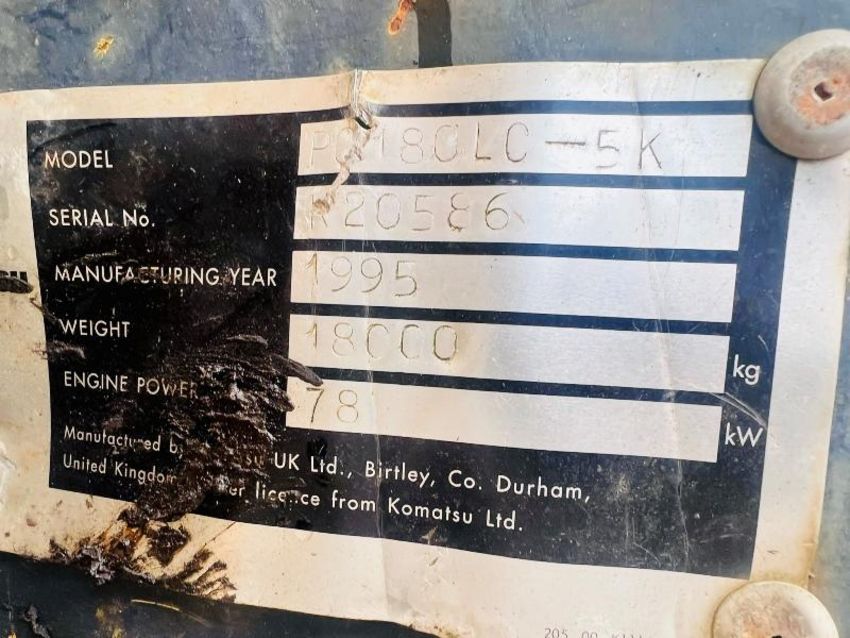 MODEL PC180LC-5K
SERIAL No. K20586
MANUFACTURING YEAR 1995
WEIGHT 18000 kg
ENGINE POWER 78 kW
Manufactured by UK Ltd., Birtley, Co. Durham,
United Kingdom licence from Komatsu Ltd.
205 00